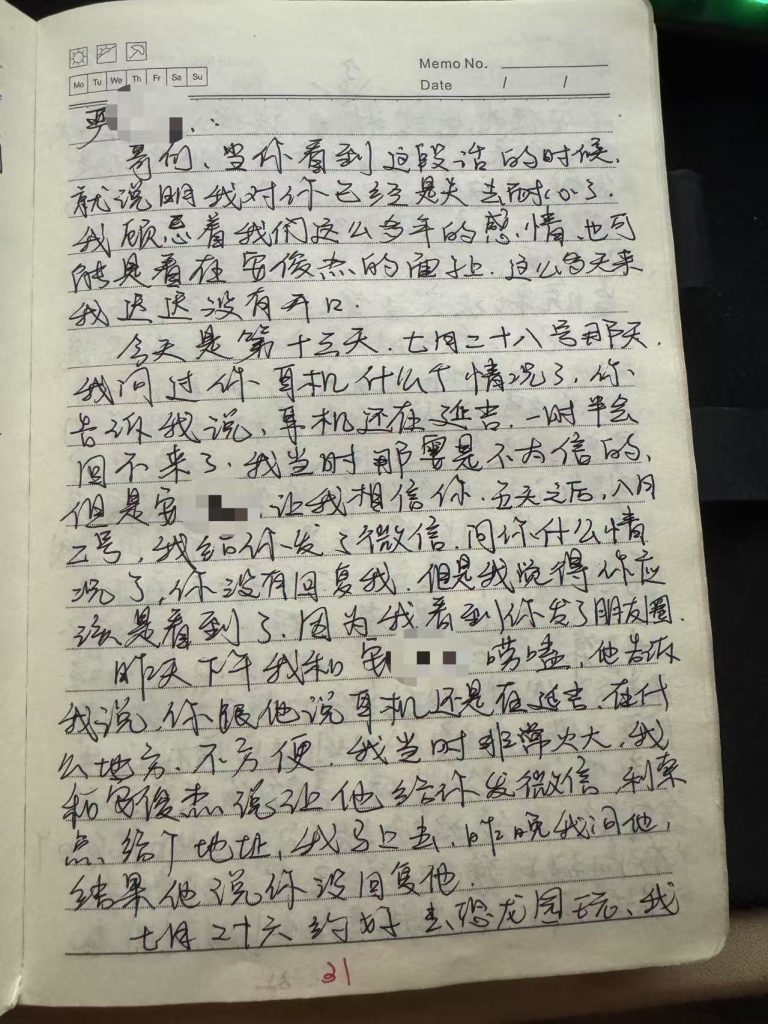 Memo No.
Mo Tu We Th Fr Sa Su
Date / /
哥们、当你看到这段话的时候、
就说明我对你已经是失去耐心了.
我顾忌着我们这么多年的感情、也可
能是看在安俊杰的面子上.这么多天来
我迟迟没有开口.
今天是第十三天.七月二十八号那天.
我问过你耳机什么个情况了,你
告诉我说、耳机还在延吉.一时半会
回不来了.我当时那是不大信的、
但是安 让我相信你.五天之后,八月
二号,我给你发了微信.问你什么情
况了,你没有回复我.但是我觉得你应
该是看到了、因为我看到你发了朋友圈.
昨天下午我和安 唠嗑,他告诉
我说,你跟他说耳机还是在延吉.在什
么地方、不方便.我当时非常火大,我
和安俊杰说让他给你发微信 利索
点给个地址、我马上去.昨晚我问他,
结果他说你没回复他.
七月二十六约好去恐龙园玩、我
31